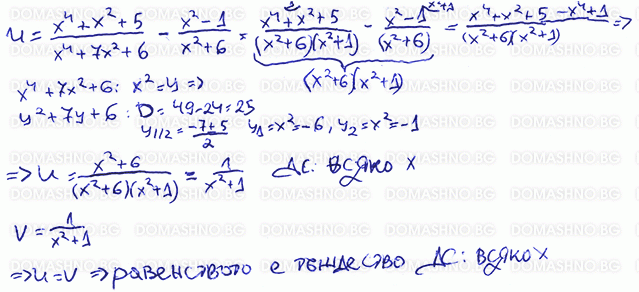 u = (x⁴+x²+5)/(x⁴+7x²+6) - (x²-1)/(x²+6) = (x⁴+x²+5)/((x²+6)(x²+1)) - (x²-1)/(x²+6) = (x⁴+x²+5-x⁴+1)/((x²+6)(x²+1)) =>
(x²+6)(x²+1)
x⁴+7x²+6: x²=y =>
y²+7y+6: D=49-24=25
y1/2=(-7±5)/2 y₁=x²=-6, y₂=x²=-1
=> u = (x²+6)/((x²+6)(x²+1)) = 1/(x²+1) ДС: всяко x
v = 1/(x²+1)
=> u=v => равенството е тъждество ДС: всяко x
DOMASHNO.BG